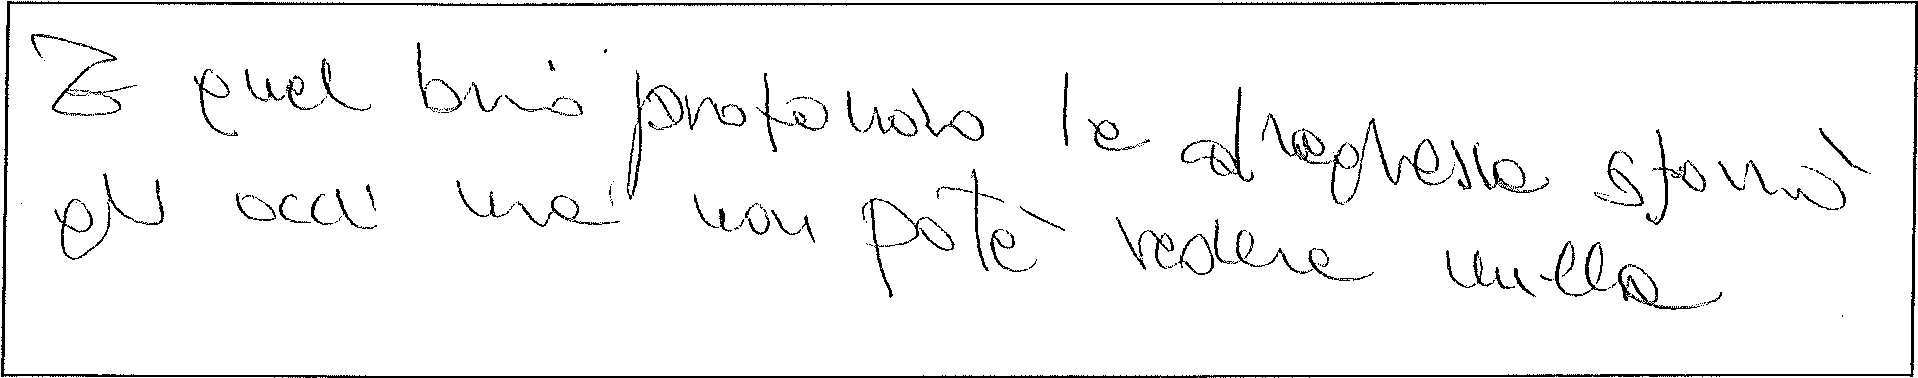 E quel buio profondo la draghessa sforzò
gli occhi ma non potè vedere nulla